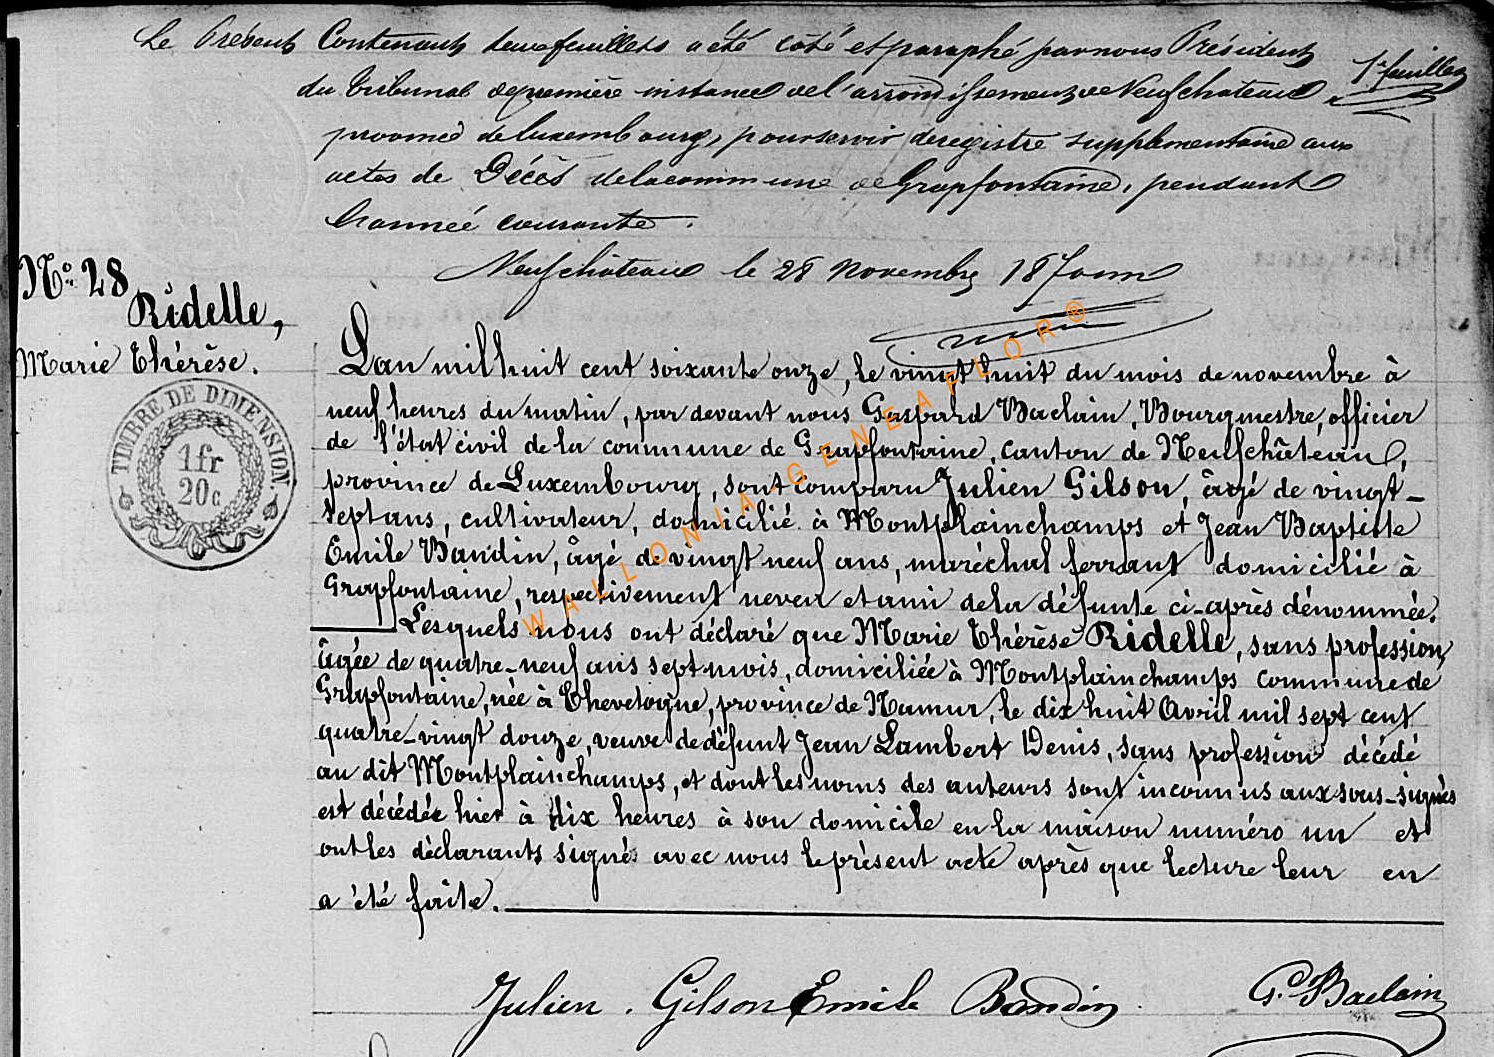 Le Présent Contenant deux feuillets a été coté et paraphé par nous Président
1er feuillet
du tribunal de première instance de l'arrondissement de Neufchateau
province de Luxembourg, pour servir de registre supplémentaire aux
actes de Décès de la commune de Grapfontaine, pendant
l'année courante.
Neufchâteau le 28 novembre 1871
No. 28
Ridelle,
Marie Thérèse.
L'an mil huit cent soixante onze, le vingt huit du mois de novembre à
neuf heures du matin, par devant nous Gaspard Baclain, Bourgmestre, officier
de l'état civil de la commune de Grapfontaine, canton de Neufchâteau,
province de Luxembourg, sont comparu Julien Gilson, âgé de vingt-
sept ans, cultivateur, domicilié à Montplainchamps et Jean Baptiste
Emile Baudin, âgé de vingt neuf ans, maréchal ferrant domicilié à
Grapfontaine, respectivement neveu et ami de la défunte ci-après dénommée.
Lesquels nous ont déclaré que Marie Thérèse Ridelle, sans profession,
âgée de quatre-neuf ans sept mois, domiciliée à Montplainchamps commune de
Grapfontaine, née à Chevetogne, province de Namur, le dix huit Avril mil sept cent
quatre-vingt douze, veuve de défunt Jean Lambert Denis, sans profession décédé
au dit Montplainchamps, et dont les noms des auteurs sont inconnus aux sous-signés
est décédée hier à dix heures à son domicile en la maison numéro un et
ont les déclarants signés avec nous le présent acte après que lecture leur en
a été faite.
TIMBRE DE DIMENSION.
1fr
20c
WALLONIA GENEAFLOR®
Julien Gilson Emile Baudin G. Baclain